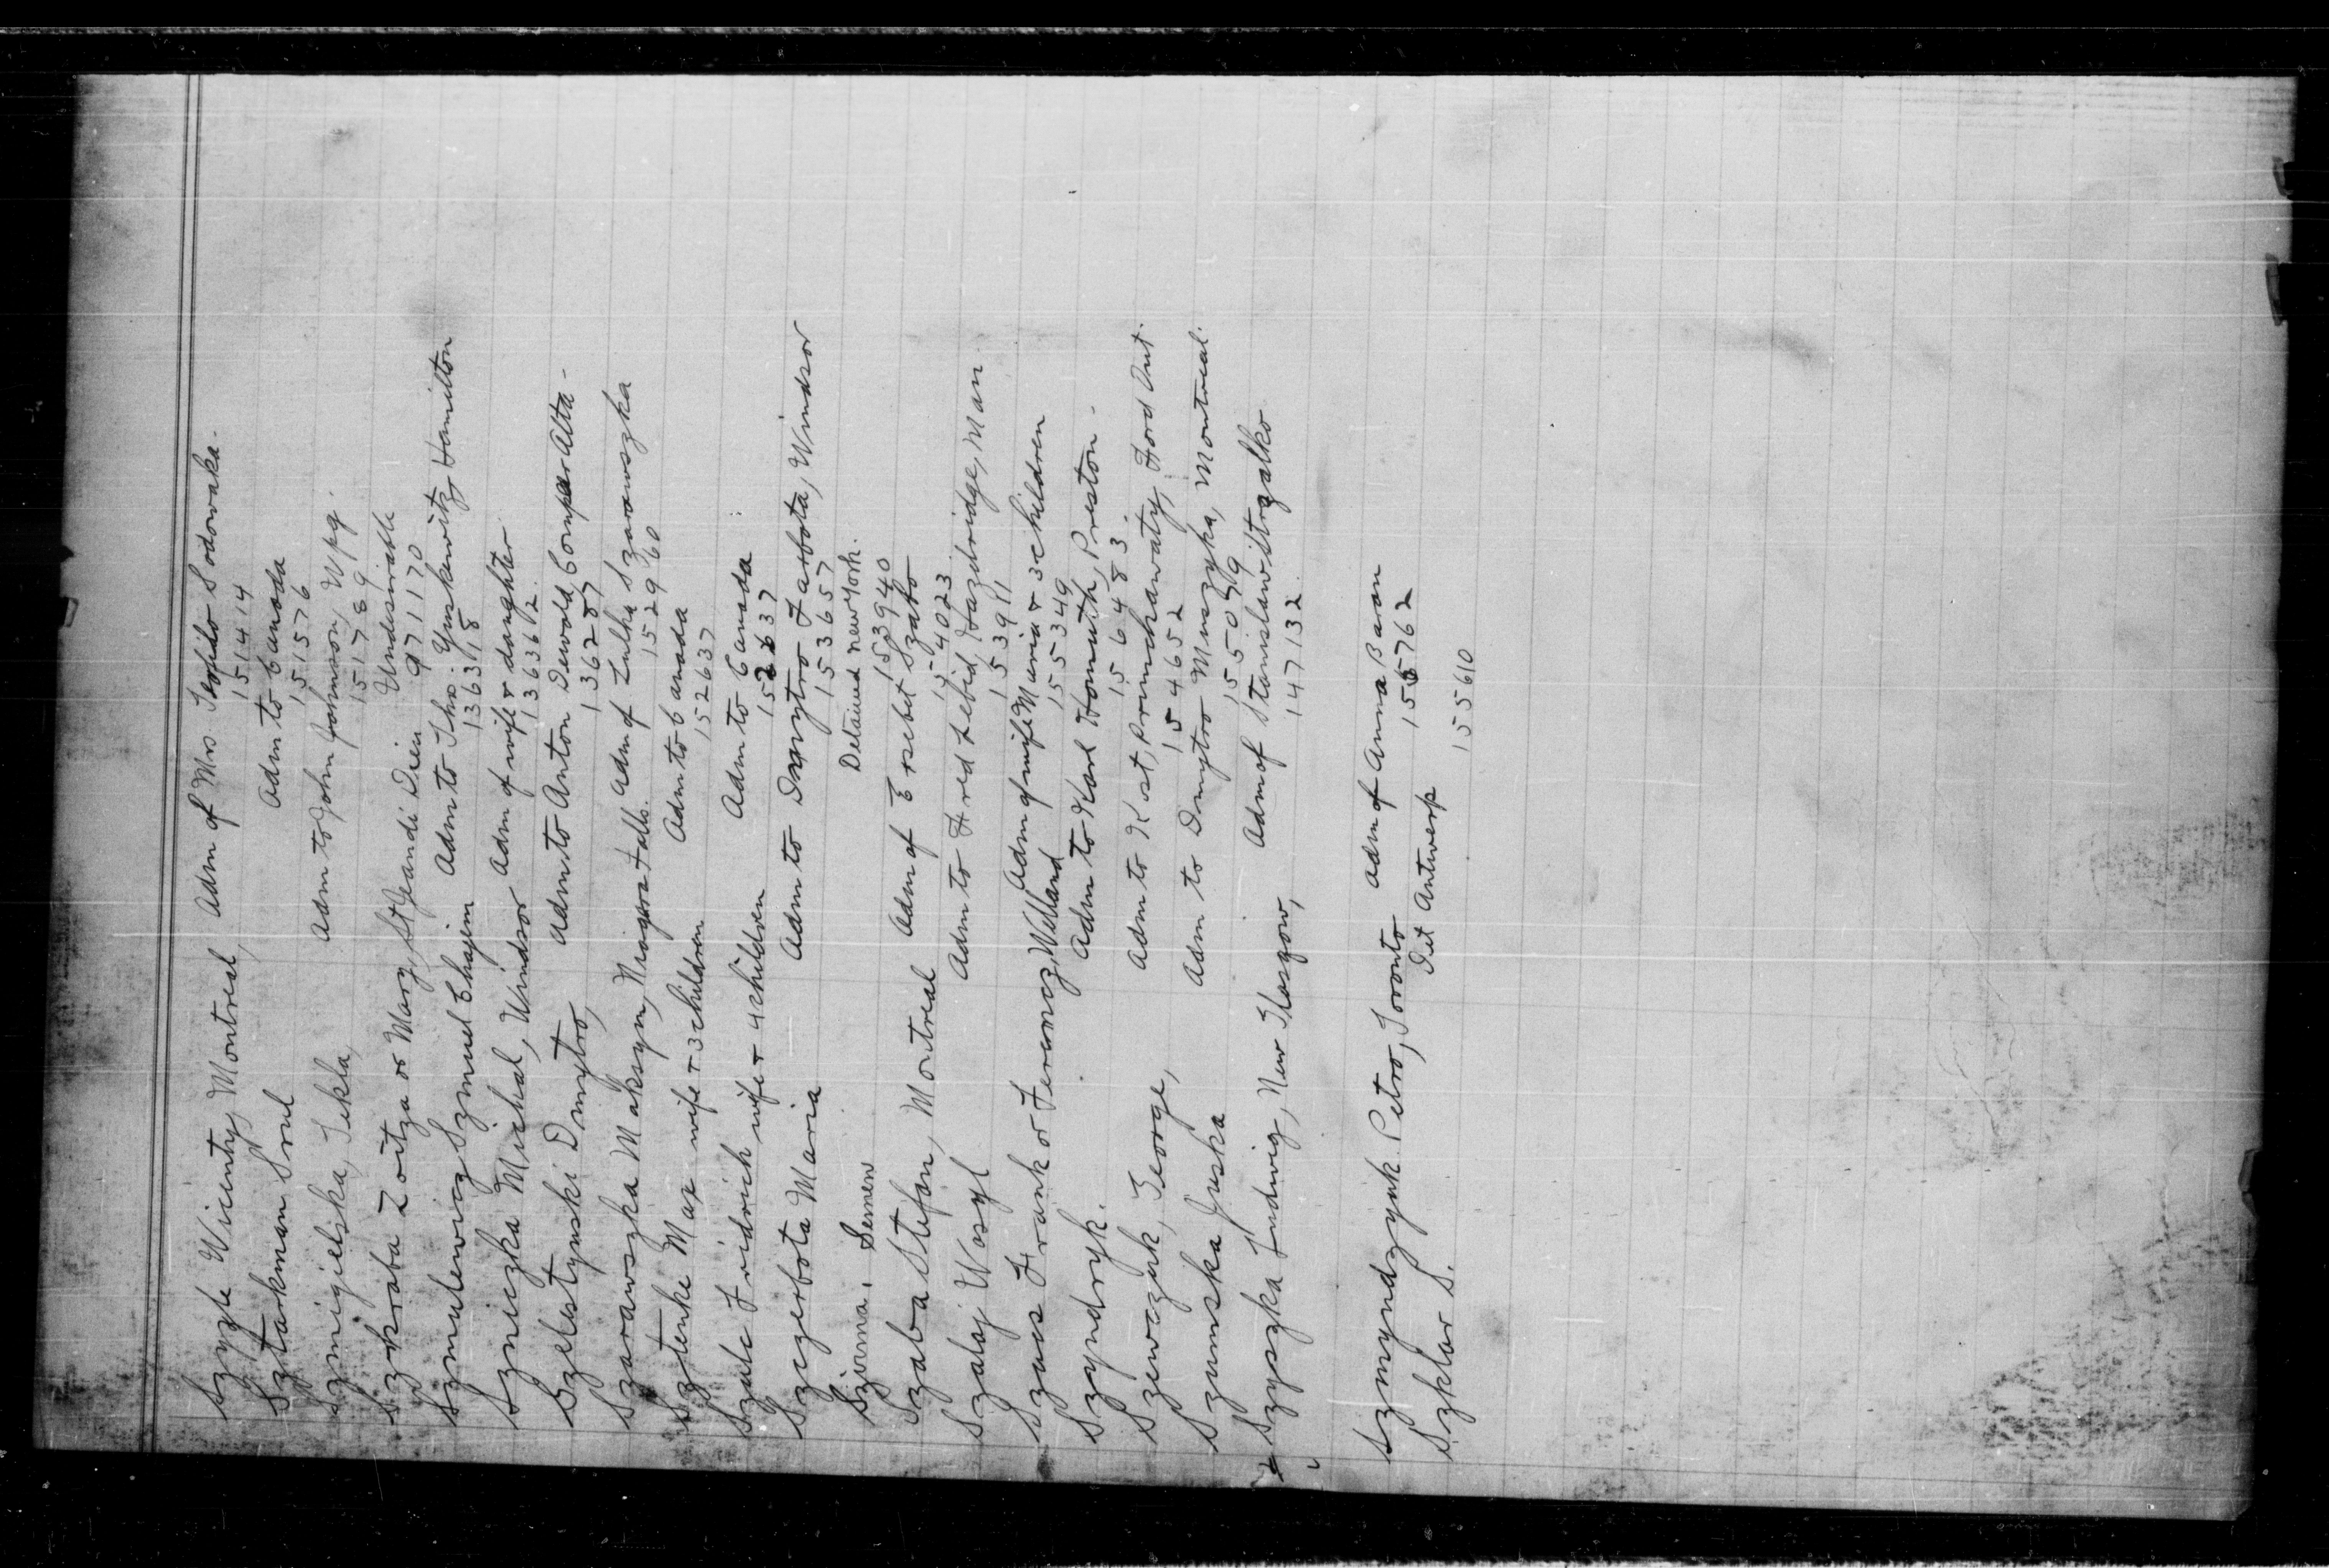 Szyzle Wicenty, Montreal, Adm of Mrs Teofido Sodowska.
151414
Sztarkman Srul Adm to Canada
151576
Szmigielska, Tekla, Adm to John Johnson, Wpg.
151789
Szkraba Zoitza or Mary, St Jean di Dieu Undesirable
971170
Szmulewicz Szmuel Chajim Adm to Thos. Yuskewitz, Hamilton
136318
Szniczka Michal, Windsor Adm of wife & daughter
136362
Szelestynski Dmytro, Adm to Anton Dewald, Compeer Alta-
136287
Szarawszka Maksym, Niagara Falls. Adm of Lulka Szarawszka
152960
Sztenke Max wife & 3 children Adm to Canada
152637
Szule Fridrich wife & 4 children Adm to Canada
152637
Szczerbota Maria Adm to Dmytro Farbota, Windsor
153657
Szirma, Semen Detained New York.
153940
Szaba Stefan, Montreal Adm of Erzebet Szabo
154023
Szalaj Wasyl Adm to Fred Lebid, Hazelridge, Man.
153911
Szucs Frank or Ferencz, Welland Adm of wife Maria & 3 children
155349
Szyndryk. Adm to Karl Homuth, Preston.
156483.
Szewczuk, George, Adm to Kost Prunchawaty, Ford Ont.
154652
Szumska Juska Adm to Dmytro Muszyka, Montreal.
155079
Szypszka Ludwig, New Glasgow, Adm of Stanislaw Strzalko
147132
Szmyndzyuk Petro, Toronto Adm of Anna Baran
Szklar S. Det Antwerp 155762
155610